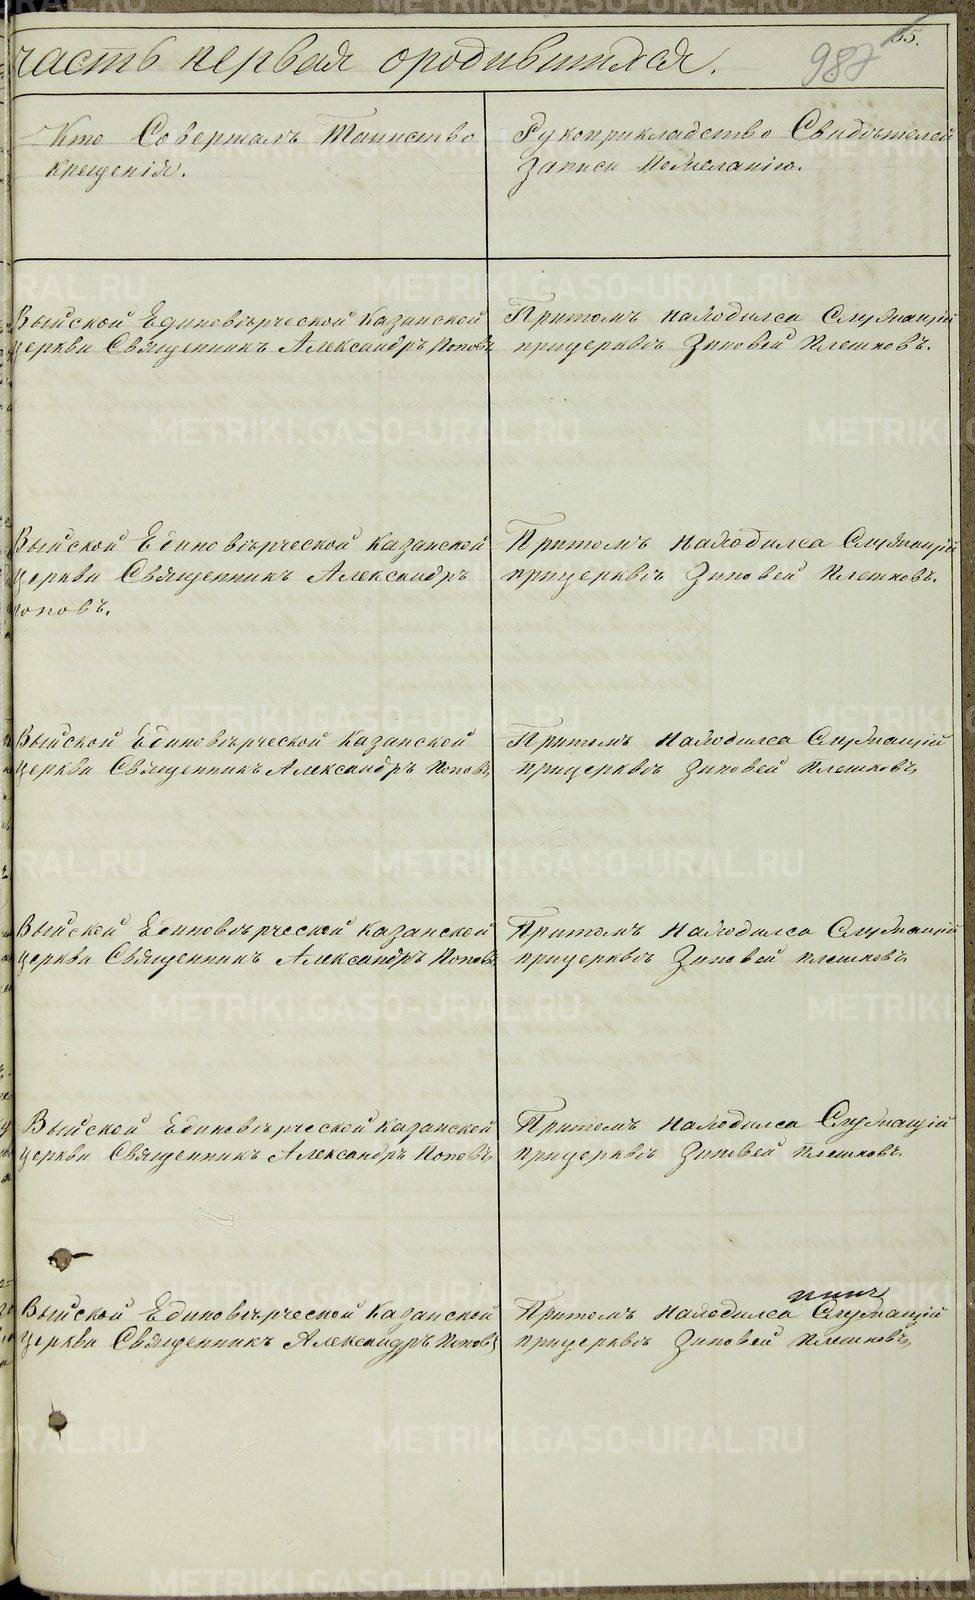 65.
987
часть первая ородившихся.
Кто Совершалъ Таинство
крещенія.
Рукоприкладство Свидѣтелей
Записи Пожеланію.
Выйской Единовѣрческой Казанской
церкви Священникъ Александръ Поповъ
Притомъ находился Служащій
прицерквѣ Зиновей Плешковъ.
Выйской Единовѣрческой Казанской
церкви Священникъ Александръ
Поповъ.
Притомъ находился Служащій
прицерквѣ Зиновей Плешковъ.
Выйской Единовѣрческой Казанской
церкви Священникъ Александръ Поповъ
Притомъ Находился Служащій
прицерквѣ Зиновей Плешковъ
Выйской Единовѣрческой Казанской
церкви Священникъ Александръ Поповъ
Притомъ Находился Служащій
прицерквѣ Зиновей Плешковъ
Выйской Единовѣрческой Казанской
церкви Священникъ Александръ Поповъ
Притомъ Находился Служащій
прицерквѣ Зиновей Плешковъ
Выйской Единовѣрческой Казанской
церкви Священникъ Александръ Поповъ
Притомъ Находился Служащій
прицерквѣ Зиновей Плешковъ
METRIKI.GASO-URAL.RU